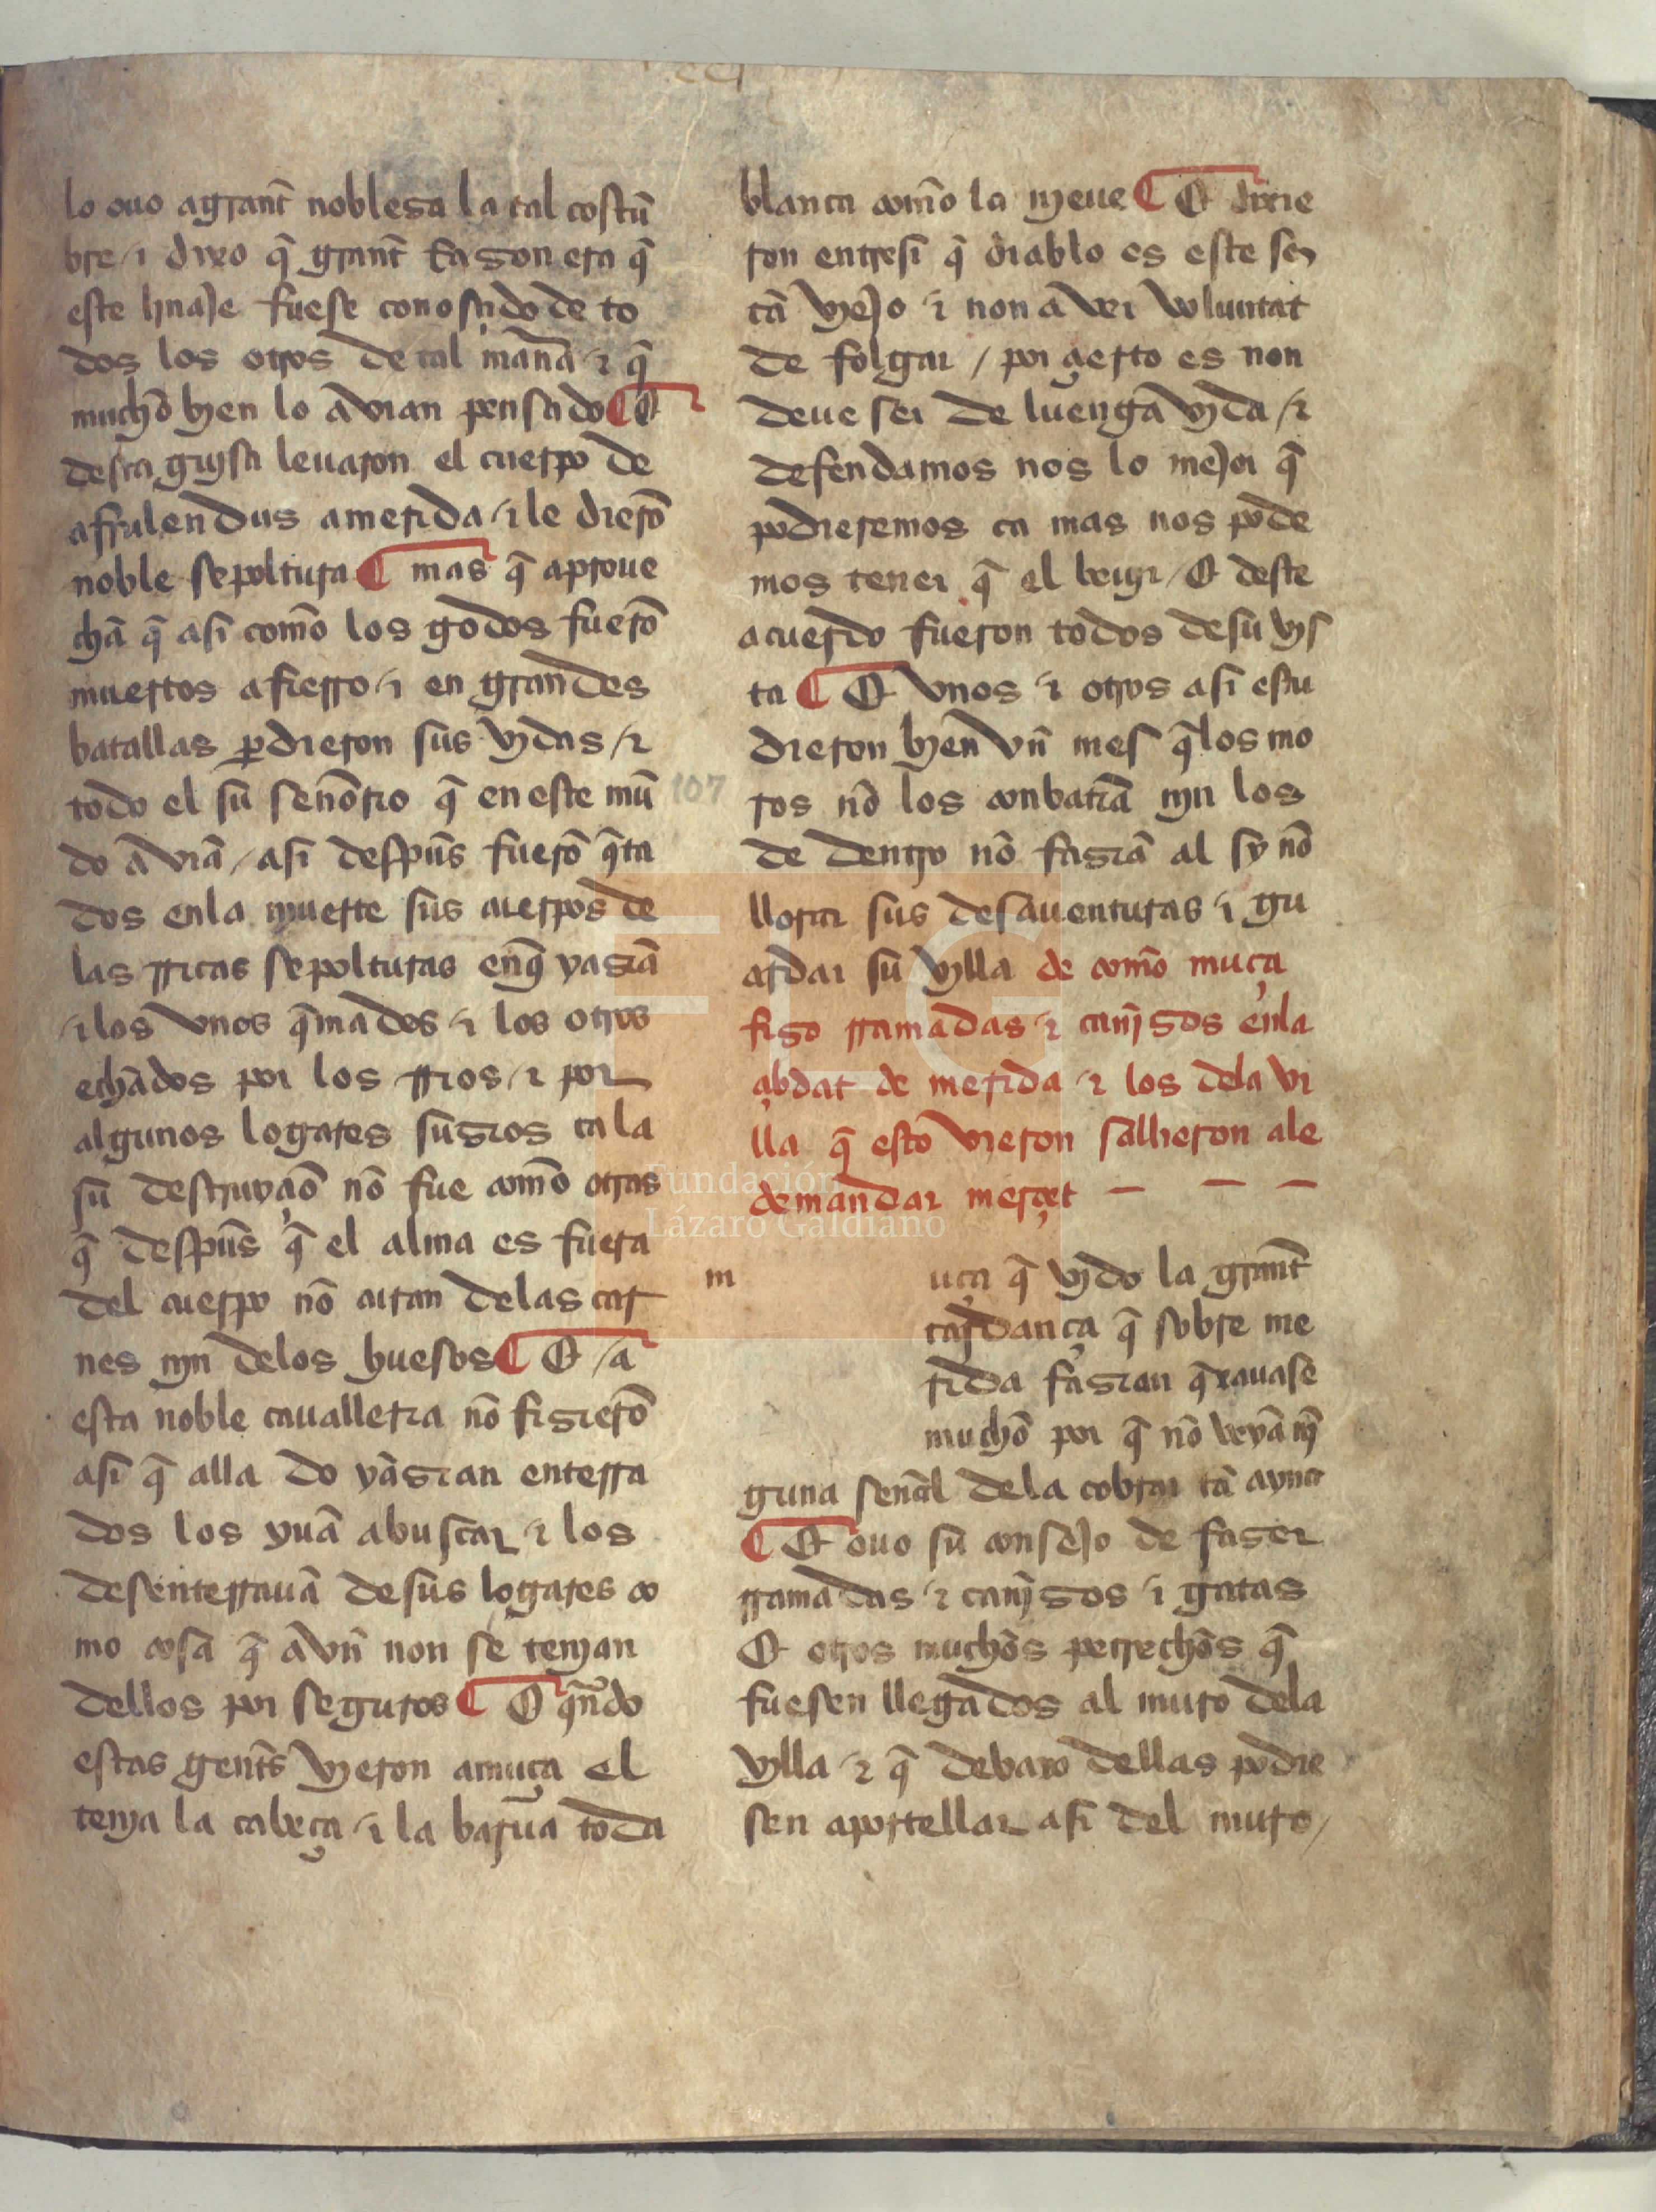 lo ouo a grant̃ noblesa la tal costũ
bre / ⁊ dixo q̃ grant̃ rrason era q̃
este linaje fuese conosçido de to
dos los otros de tal man̄a ⁊ q̃
mucho bien lo avian pensado ¶ E
desta guisa leuaron el cuerpo de
afrulendus a merida / ⁊ le dierõ
noble sepoltura ¶ mas q̃ aproue
chã q̃ asi como los godos fuerõ
muertos a fierro / ⁊ en grandes
batallas ꝑdieron sus vidas / ⁊
todo el su señorio q̃ en este mũ
do avιã / asi despũs fuerõ q̃ta
dos en la muerte sus cuerpos de
las rricas sepolturas en q̃ yasiã
⁊ los vnos q̃mados / ⁊ los otros
echados por los rrios / ⁊ por
algunos logares susios ca la
su destruyçiõ nõ fue como otras
q̃ despũs q̃ el alma es fuera
del cuerpo nõ curan de las car
nes nyn de los huesos ¶ E / a
esta noble caualleria nõ fisierõ
asi q̃ alla do yasian enterra
dos los yuã a buscar ⁊ los
desenterrauã de sus logares co
mo cosa q̃ avñ non se tenian
dellos por seguros ¶ E qñdo
estas gent̃s vieron a muça el
tenia la cabeça / ⁊ la barua toda
107
blanca como la nieue ¶ E dixie
ron entre si q̃ diablo es este señ
tã viejo ⁊ non a ver voluntat
de folgar / por çierto es non
deue ser de luenga vida / ⁊
defendamos nos lo mejor q̃
podieremos ca mas nos pode
mos tener q̃ el beuir / E deste
acuerdo fueron todos de su vis
ta ¶ E vnos ⁊ otros asi estu
dieron bien vñ mes q̃ los mo
ros nõ los conbatiã nyn los
de dentro nõ fasiã al sy nõ
llorar sus desauenturas ⁊ gu
ardar su villa de como muça
fiso rramadas ⁊ cañisos en la
çibdat de merida ⁊ los dela vi
lla q̃ esto vieron sallieron a le
demandar merçet — — —
m uça q̃ vido la grant̃
tardança q̃ sobre me
rida fasian q̃xauase
mucho por q̃ nõ veyã nĩ
guna señal dela cobrar tã ayna
¶ E ouo su consejo de faser
rramadas ⁊ cañisos ⁊ gatas
E otros muchos pertrechos q̃
fuesen llegados al muro dela
villa ⁊ q̃ debaxo dellas podie
sen aportellar asi del muro /